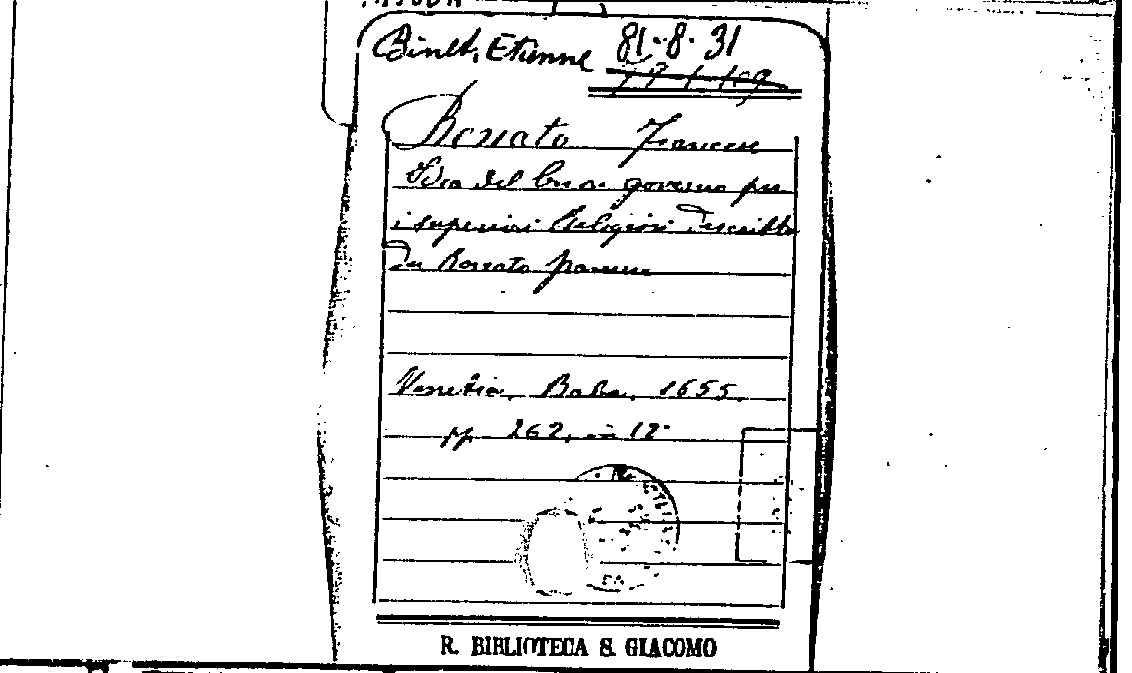 Binet, Etienne 81·8·31
Renato Francese
Idea del buon governo per
i superiori Religiosi descritta
da Renato francese
Venetia, Baba, 1655.
pp. 262, in 12°
R. BIBLIOTECA S. GIACOMO